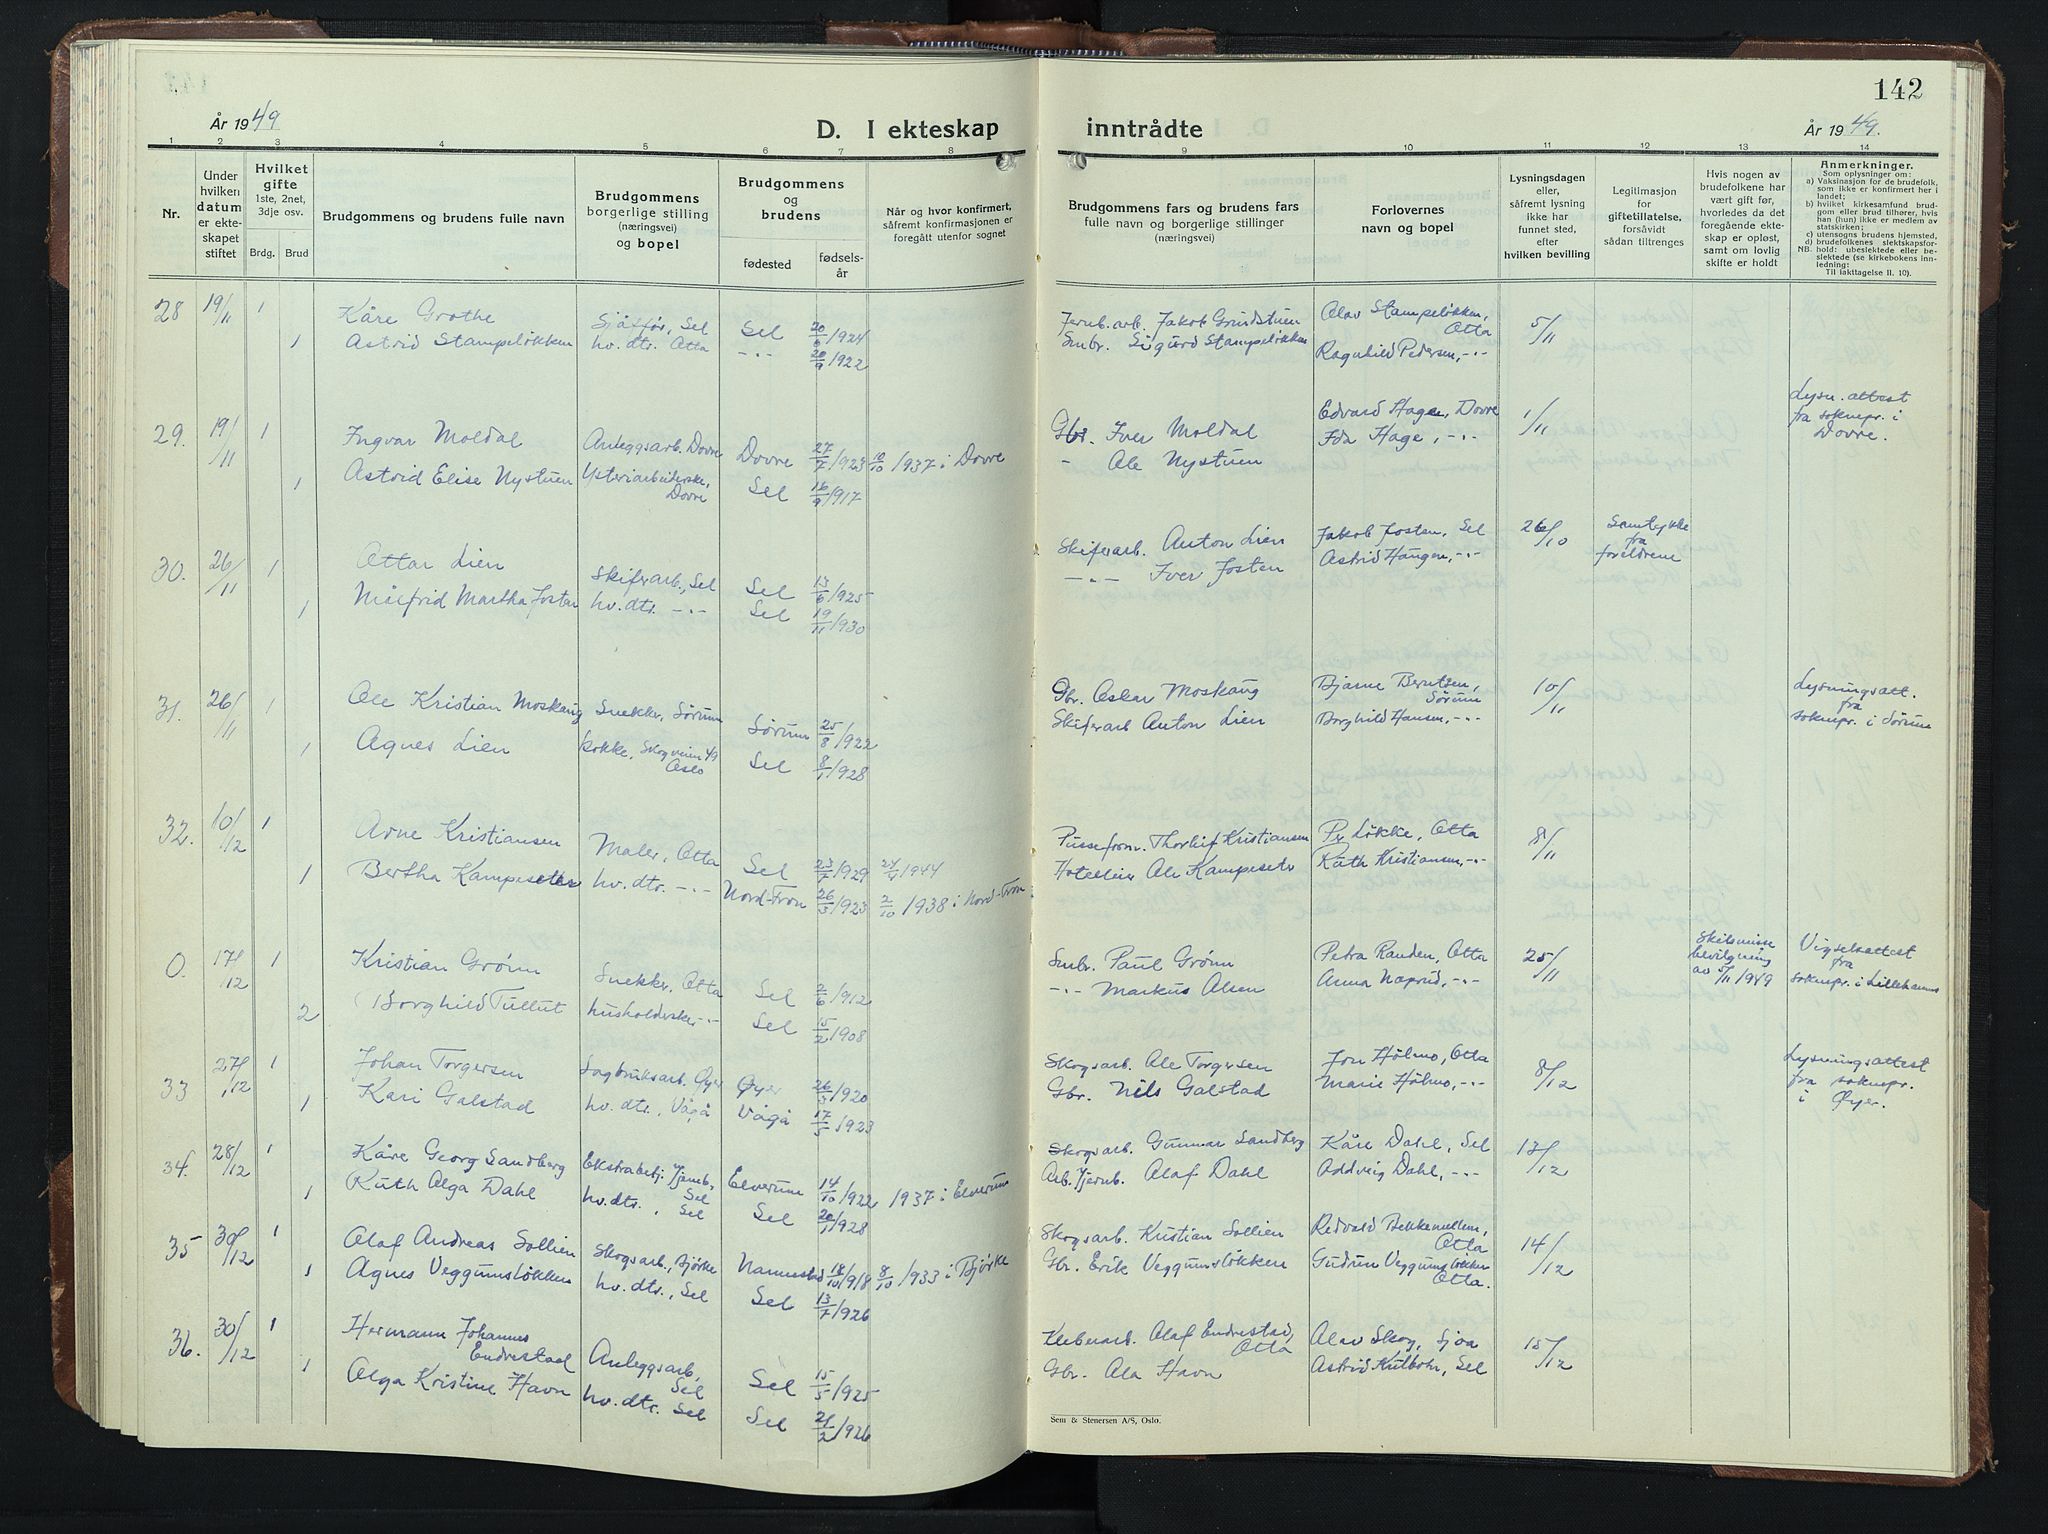 142
År 1949
D. I ekteskap
inntrådte
År 1949.
1 2 3 4 5 6 7 8 9 10 11 12 13 14
Nr.
Under
hvilken
datum
er ekte-
skapet
stiftet
Hvilket
gifte
1ste, 2net,
3dje osv.
Brdg. Brud
Brudgommens og brudens fulle navn
Brudgommens
borgerlige stilling
(næringsvei)
og bopel
Brudgommens
og
brudens
fødested
fødsels-
år
Når og hvor konfirmert,
såfremt konfirmasjonen er
foregått utenfor sognet
Brudgommens fars og brudens fars
fulle navn og borgerlige stillinger
(næringsvei)
Forlovernes
navn og bopel
Lysningsdagen
eller,
såfremt lysning
ikke har
funnet sted,
efter
hvilken bevilling
Legitimasjon
for
giftetillatelse,
forsåvidt
sådan tiltrenges
Hvis nogen av
brudefolkene har
vært gift før,
hvorledes da det
foregående ekte-
skap er opløst,
samt om lovlig
skifte er holdt
Anmerkninger.
Som oplysninger om:
a) Vaksinasjon for de brudefolk,
som ikke er konfirmert her i
landet;
b) hvilket kirkesamfund brud-
gom eller brud tilhører, hvis
han (hun) ikke er medlem av
statskirken;
c) utensogns brudens hjemsted,
d) brudefolkenes slektskapsfor-
NB. hold: ubeslektede eller be-
slektede (se kirkebokens inn-
ledning:
Til iakttagelse II. 10).
28 19/11 1 Kåre Grothe Sjåfør, Sel Sel 20/6 1924 Jernb.arb. Jakob Grundstuen Olav Stampeløkken, Otta 5/11
1 Astrid Stampeløkken hv. dtr. Otta -"- 20/9 1922 Smbr. Sigurd Stampeløkken Ragnhild Pedersen, -"-
29. 19/11 1 Ingvar Moldal Anleggsarb. Dovre Dovre 27/7 1923 10/10 1937 i Dovre Gbr. Iver Moldal Edvard Hage, Dovre 1/11 Lysn. attest fra soknepr. i Dovre.
1 Astrid Elise Nystuen Ysteriarbeiderske, Dovre Sel 16/9 1917 - Ole Nystuen Ida Hage, -"-
30. 26/11 1 Ottar Lien Skiferarb., Sel Sel 13/6 1925 Skiferarb. Anton Lien Jakob Josten, Sel 26/10 Samtykke fra foreldrene
1 Målfrid Martha Josten hv. dtr. -"- Sel 19/11 1930 -"- Iver Josten Astrid Haugen, -"-
31. 26/11 1 Ole Kristian Moskaug Snekker, Sørum Sørum 25/8 1922 Gbr. Oskar Moskaug Bjarne Berntsen, Sørum 10/11 Lysningsatt. fra soknepr. i Sørum
1 Agnes Lien kokke, Skogveien 49 Oslo Sel 8/1 1928 Skiferarb Anton Lien Borghild Hansen, -"-
32. 10/12 1 Arne Kristiansen Maler, Otta Sel 23/7 1929 1944 Pusseform. Thorleif Kristiansen Løkke, Otta 8/11
1 Bertha Kampeseter hv. dtr. -"- Nord-Fron 26/3 1923 2/10 1938 i Nord-Fron Hotelleier Ole Kampeseter Ruth Kristiansen, -"-
0. 17/12 1 Kristian Grønn Snekker, Otta Sel 2/6 1912 Smbr. Paul Grønn Petra Randen, Otta 25/11 Skilsmisse bevilgning av 5/11 1949 Vigselattest fra soknepr. i Lillehamm
2 Borghild Tullut husholderske, -"- Sel 15/2 1908 -"- Markus Olsen Anna Naprud, -"-
33 27/12 1 Johan Torgersen Sagbruksarb. Øyer Øyer 26/3 1920 Skogsarb. Ole Torgersen Jon Holmo, Otta 8/12 Lysningsattest fra soknepr. i Øyer.
1 Kari Galstad hv. dtr., Vågå Vågå 17/5 1923 Gbr. Nils Galstad Marie Holmo, -"-
34. 28/12 1 Kåre Georg Sandberg Ekstrabetj. Jernb., Sel Elverum 14/10 1922 1937 i Elverum Skogsarb. Gunnar Sandberg Kåre Dahl, Sel 13/12
1 Ruth Olga Dahl hv. dtr., Sel Sel 20/1 1928 Arb. Jernb. Olaf Dahl Oddveig Dahl, -"-
35 30/12 1 Olaf Andreas Sollien Skogsarb., Bjørke Nannestad 18/10 1918 8/10 1933 i Bjørke Skogsarb. Kristian Sollien Redvald Bekkemellem, Otta 14/12
1 Agnes Veggumsløkken hv. dtr., Sel Sel 13/7 1926 Gbr. Erik Veggumsløkken Gudrun Veggumsløkken Otta.
36. 30/12 1 Hermann Johannes Endrestad Anleggsarb, Sel Sel 15/5 1925 Kleberarb. Olaf Endrestad, Otta Olav Skog, Sjoa 15/12
1 Olga Kristine Havn hv. dtr. Sel Sel 21/2 1926 Gbr. Ola Havn Astrid Kulbotn, Sel
Sem & Stenersen A/S, Oslo.